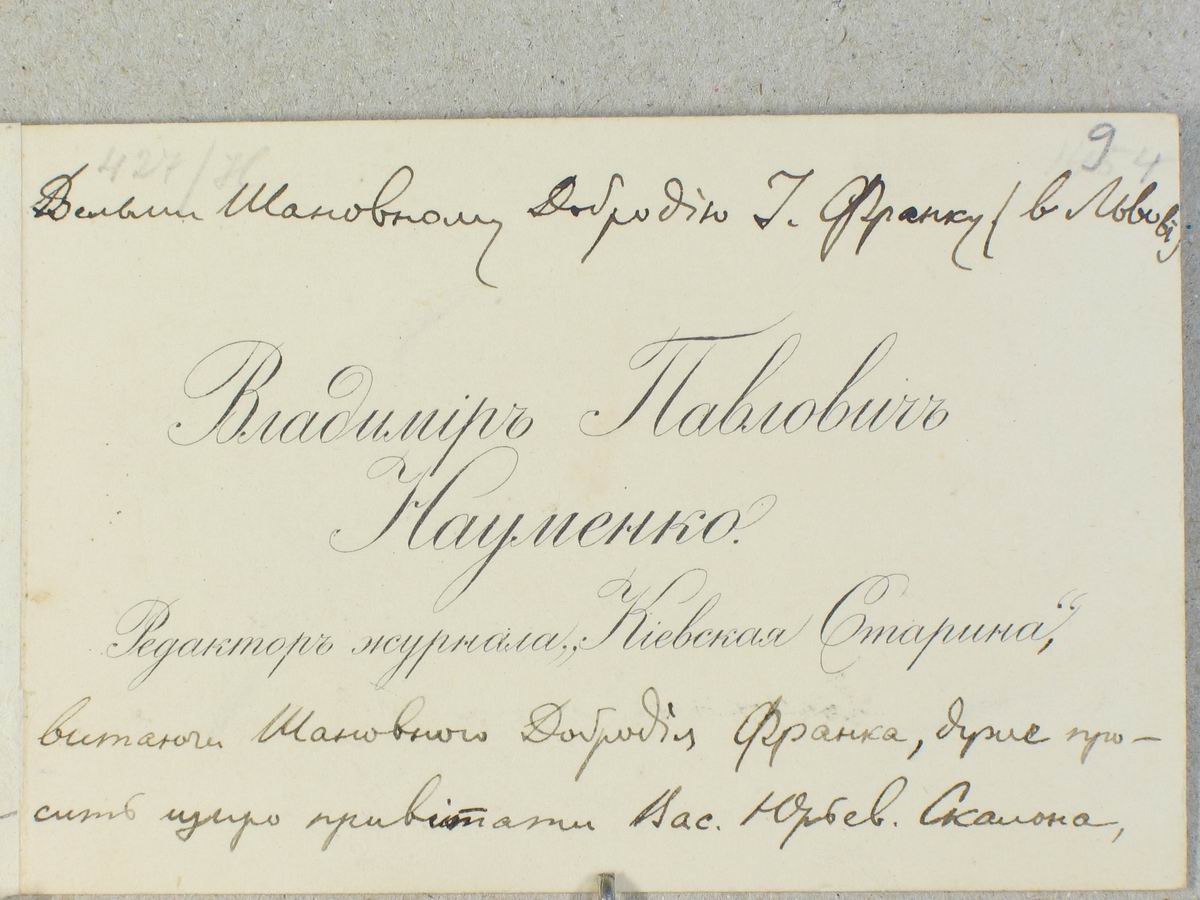 9
427/Н
Вельми Шановному Добродію І. Франку (в Львові)
Владиміръ Павловичъ
Науменко.
Редакторъ журнала „Кіевская Старина“,
витаючи Шановного Добродія Франка, дуже про-
сить щиро привітати Вас. Юрьев. Скалона,